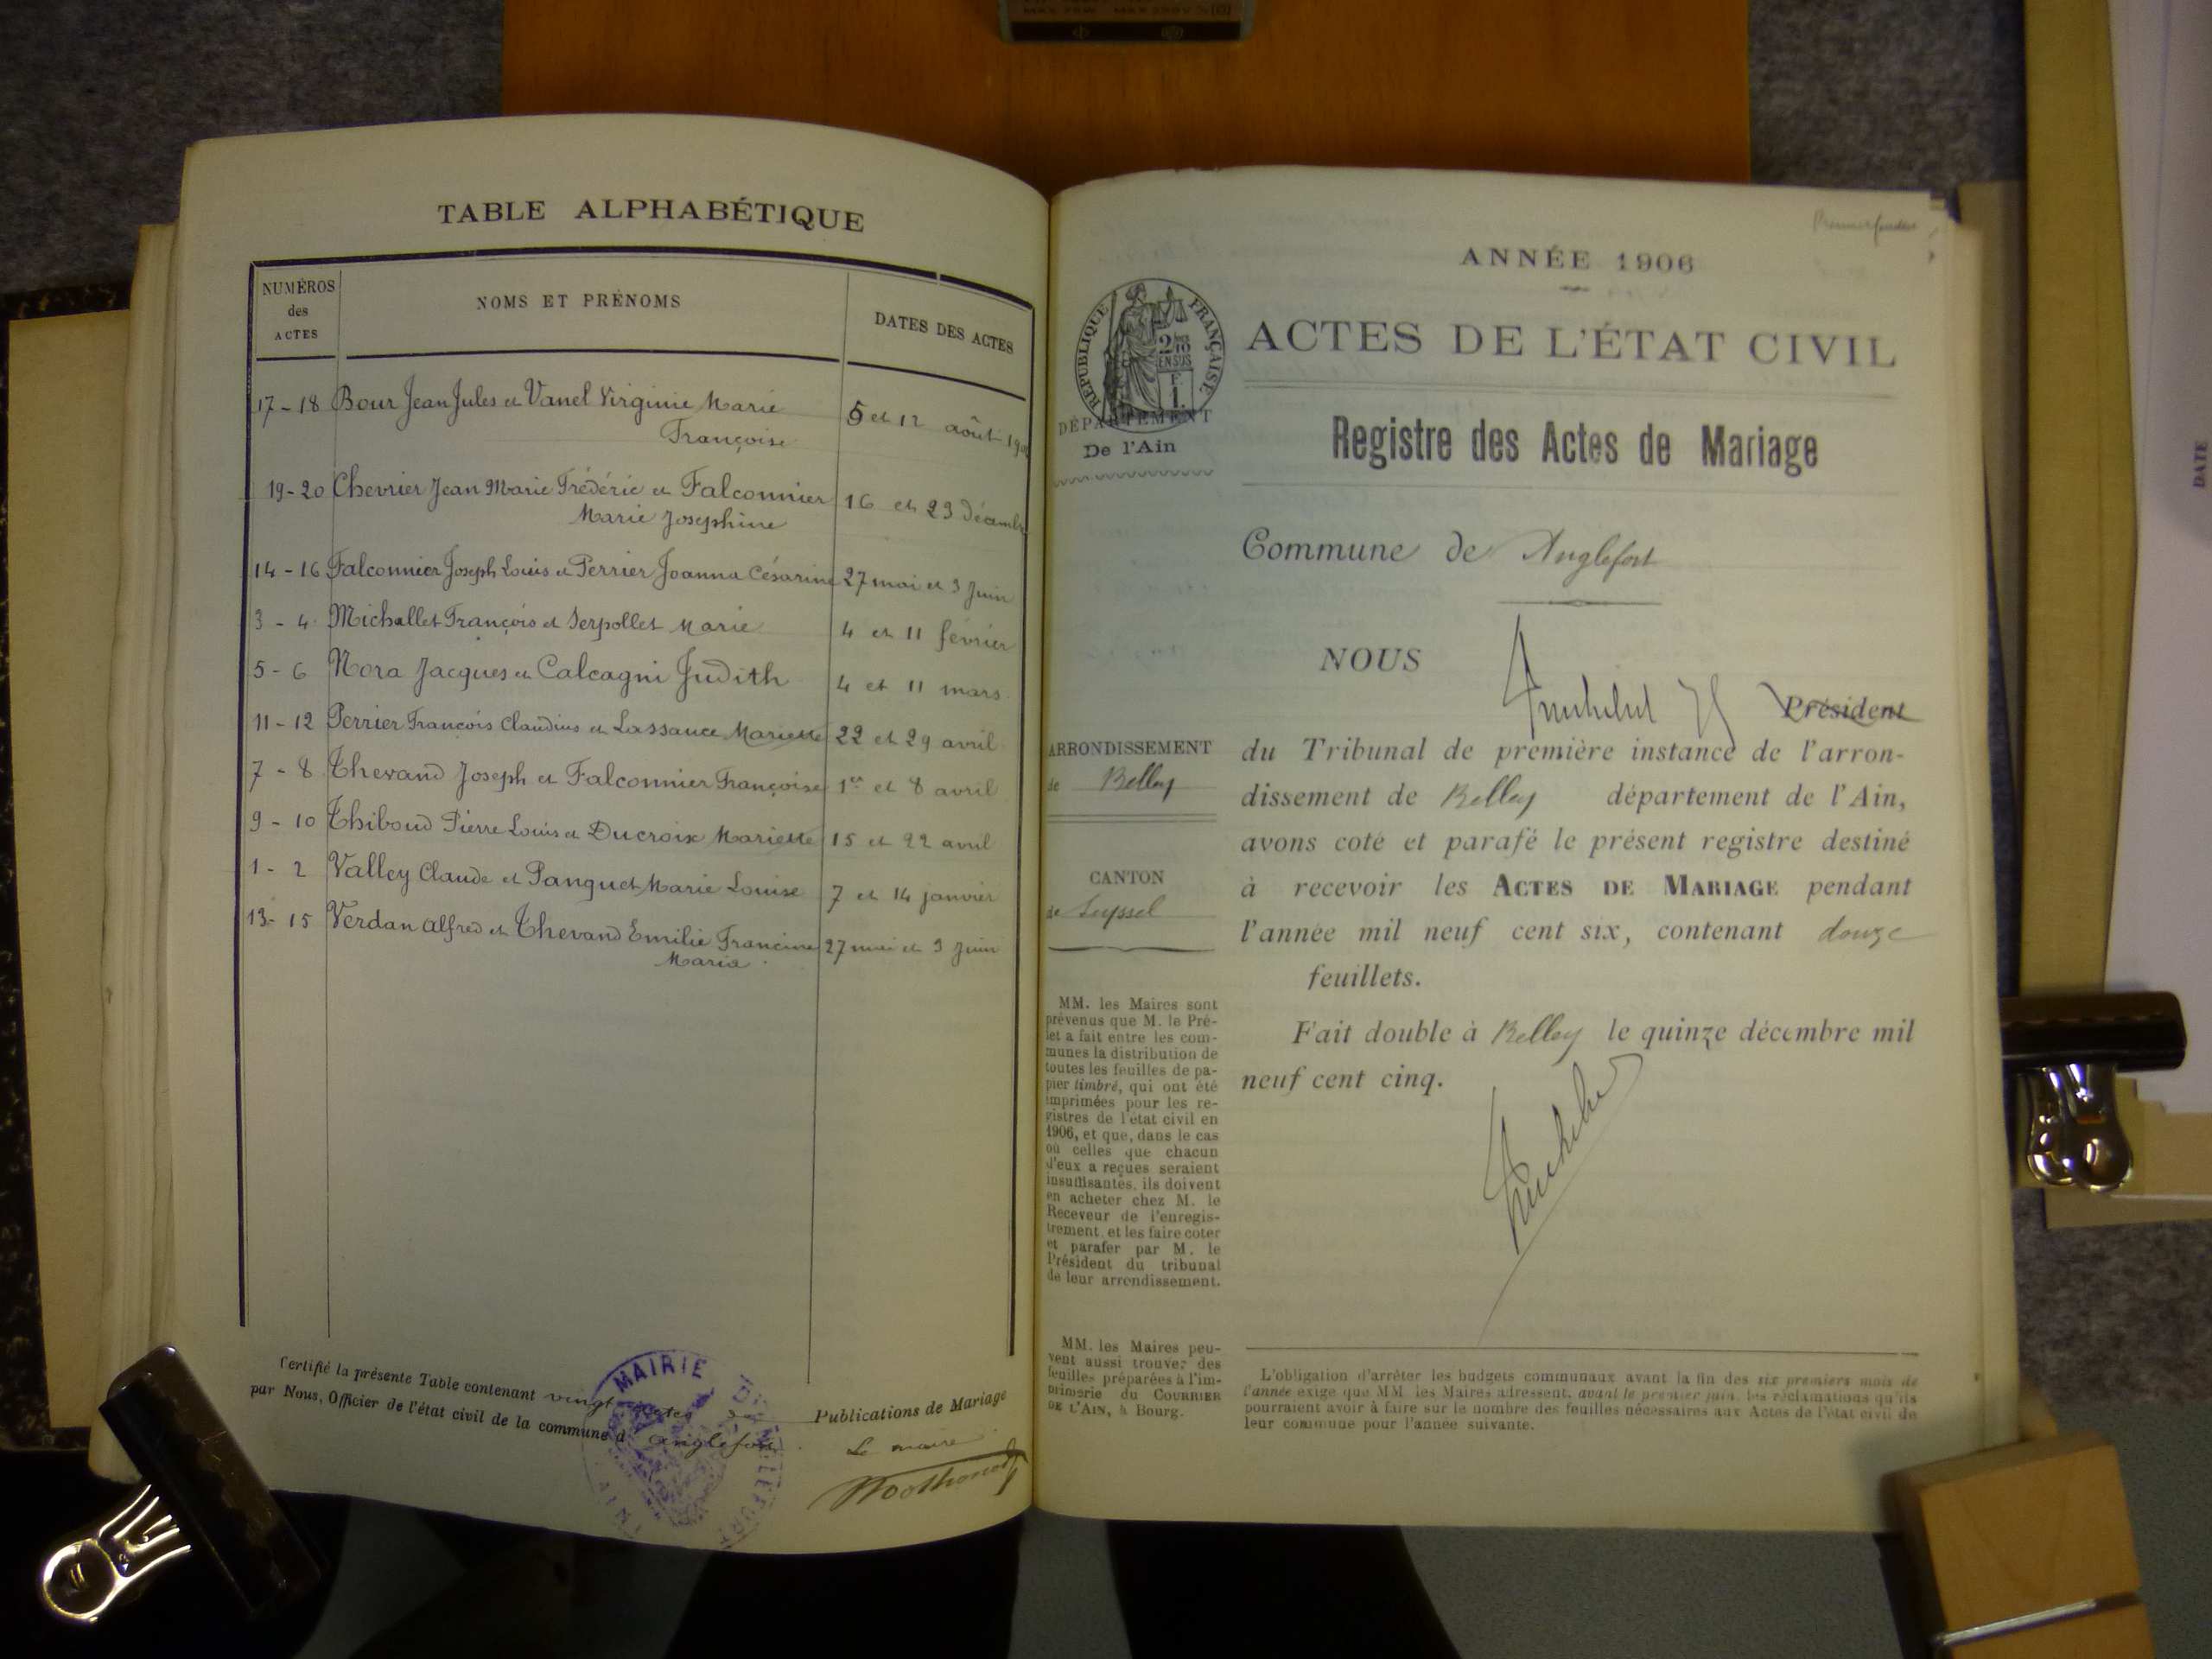 TABLE ALPHABÉTIQUE
NUMÉROS
des
ACTES
NOMS ET PRÉNOMS
DATES DES ACTES
17-18 Bour Jean Jules et Vanel Virginie Marie
Françoise
5 et 12 août
19-20 Chevrier Jean Marie Frédéric et Falconnier
Marie Josephine
16 et 23 décembre
14-16 Falconnier Joseph Louis et Perrier Joanna Césarine 27 mai et 3 Juin
3-4 Michallet François et Serpollet Marie 4 et 11 février
5-6 Nora Jacques et Calcagni Judith 4 et 11 mars
11-12 Perrier François Claudius et Lassauce Mariette 22 et 29 avril
7-8 Thevand Joseph et Falconnier Françoise 1er et 8 avril
9-10 Thiboud Pierre Louis et Ducroix Mariette 15 et 22 avril
1-2 Valley Claude et Panguet Marie Louise 7 et 14 janvier
13-15 Verdan Alfred et Thevand Emilie Francine
Maria
27 mai et 3 Juin
Certifié la présente Table contenant vingt actes de Publications de Mariage
par Nous, Officier de l'état civil de la commune d'Anglefort
Le maire
MAIRIE D'ANGLEFORT
AIN
ANNÉE 1906
RÉPUBLIQUE FRANÇAISE
2/10
EN SUS
F.
1.
ACTES DE L'ÉTAT CIVIL
DÉPARTEMENT
De l'Ain
Registre des Actes de Mariage
Commune de Anglefort
NOUS
Président
ARRONDISSEMENT
de Belley
CANTON
de Seyssel
du Tribunal de première instance de l'arron-
dissement de Belley département de l'Ain,
avons coté et parafé le présent registre destiné
à recevoir les ACTES DE MARIAGE pendant
l'année mil neuf cent six, contenant douze
feuillets.
Fait double à Belley le quinze décembre mil
neuf cent cinq.
MM. les Maires sont
prévenus que M. le Pré-
fet a fait entre les com-
munes la distribution de
toutes les feuilles de pa-
pier timbré, qui ont été
imprimées pour les re-
gistres de l'état civil en
1906, et que, dans le cas
où celles que chacun
d'eux a reçues seraient
insuffisantes, ils doivent
en acheter chez M. le
Receveur de l'enregis-
trement, et les faire coter
et parafer par M. le
Président du tribunal
de leur arrondissement.
MM. les Maires peu-
vent aussi trouver des
feuilles préparées à l'im-
primerie du COURRIER
DE L'AIN, à Bourg.
L'obligation d'arrêter les budgets communaux avant la fin des six premiers mois de
l'année exige que MM. les Maires adressent, avant le premier juin, les réclamations qu'ils
pourraient avoir à faire sur le nombre des feuilles nécessaires aux Actes de l'état civil de
leur commune pour l'année suivante.
DATE